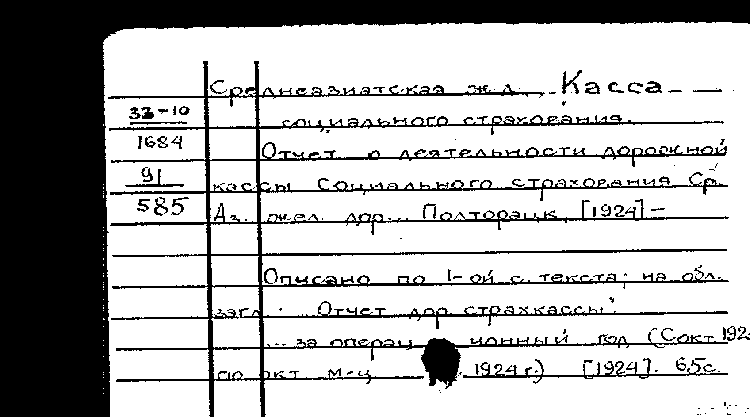 Среднеазиатская ж.д. Касса
33-10
социального страхования.
1684
Отчет о деятельности дорожной
91
кассы Социального страхования Ср.
585
Аз. жел. дор... Полторацк, [1924] -
Описано по 1-ой с. текста; на обл.
загл.: Отчет дор страхкассы
... за операционный год (Сокт 192
по окт м-ц 1924 г.) [1924]. 65с.